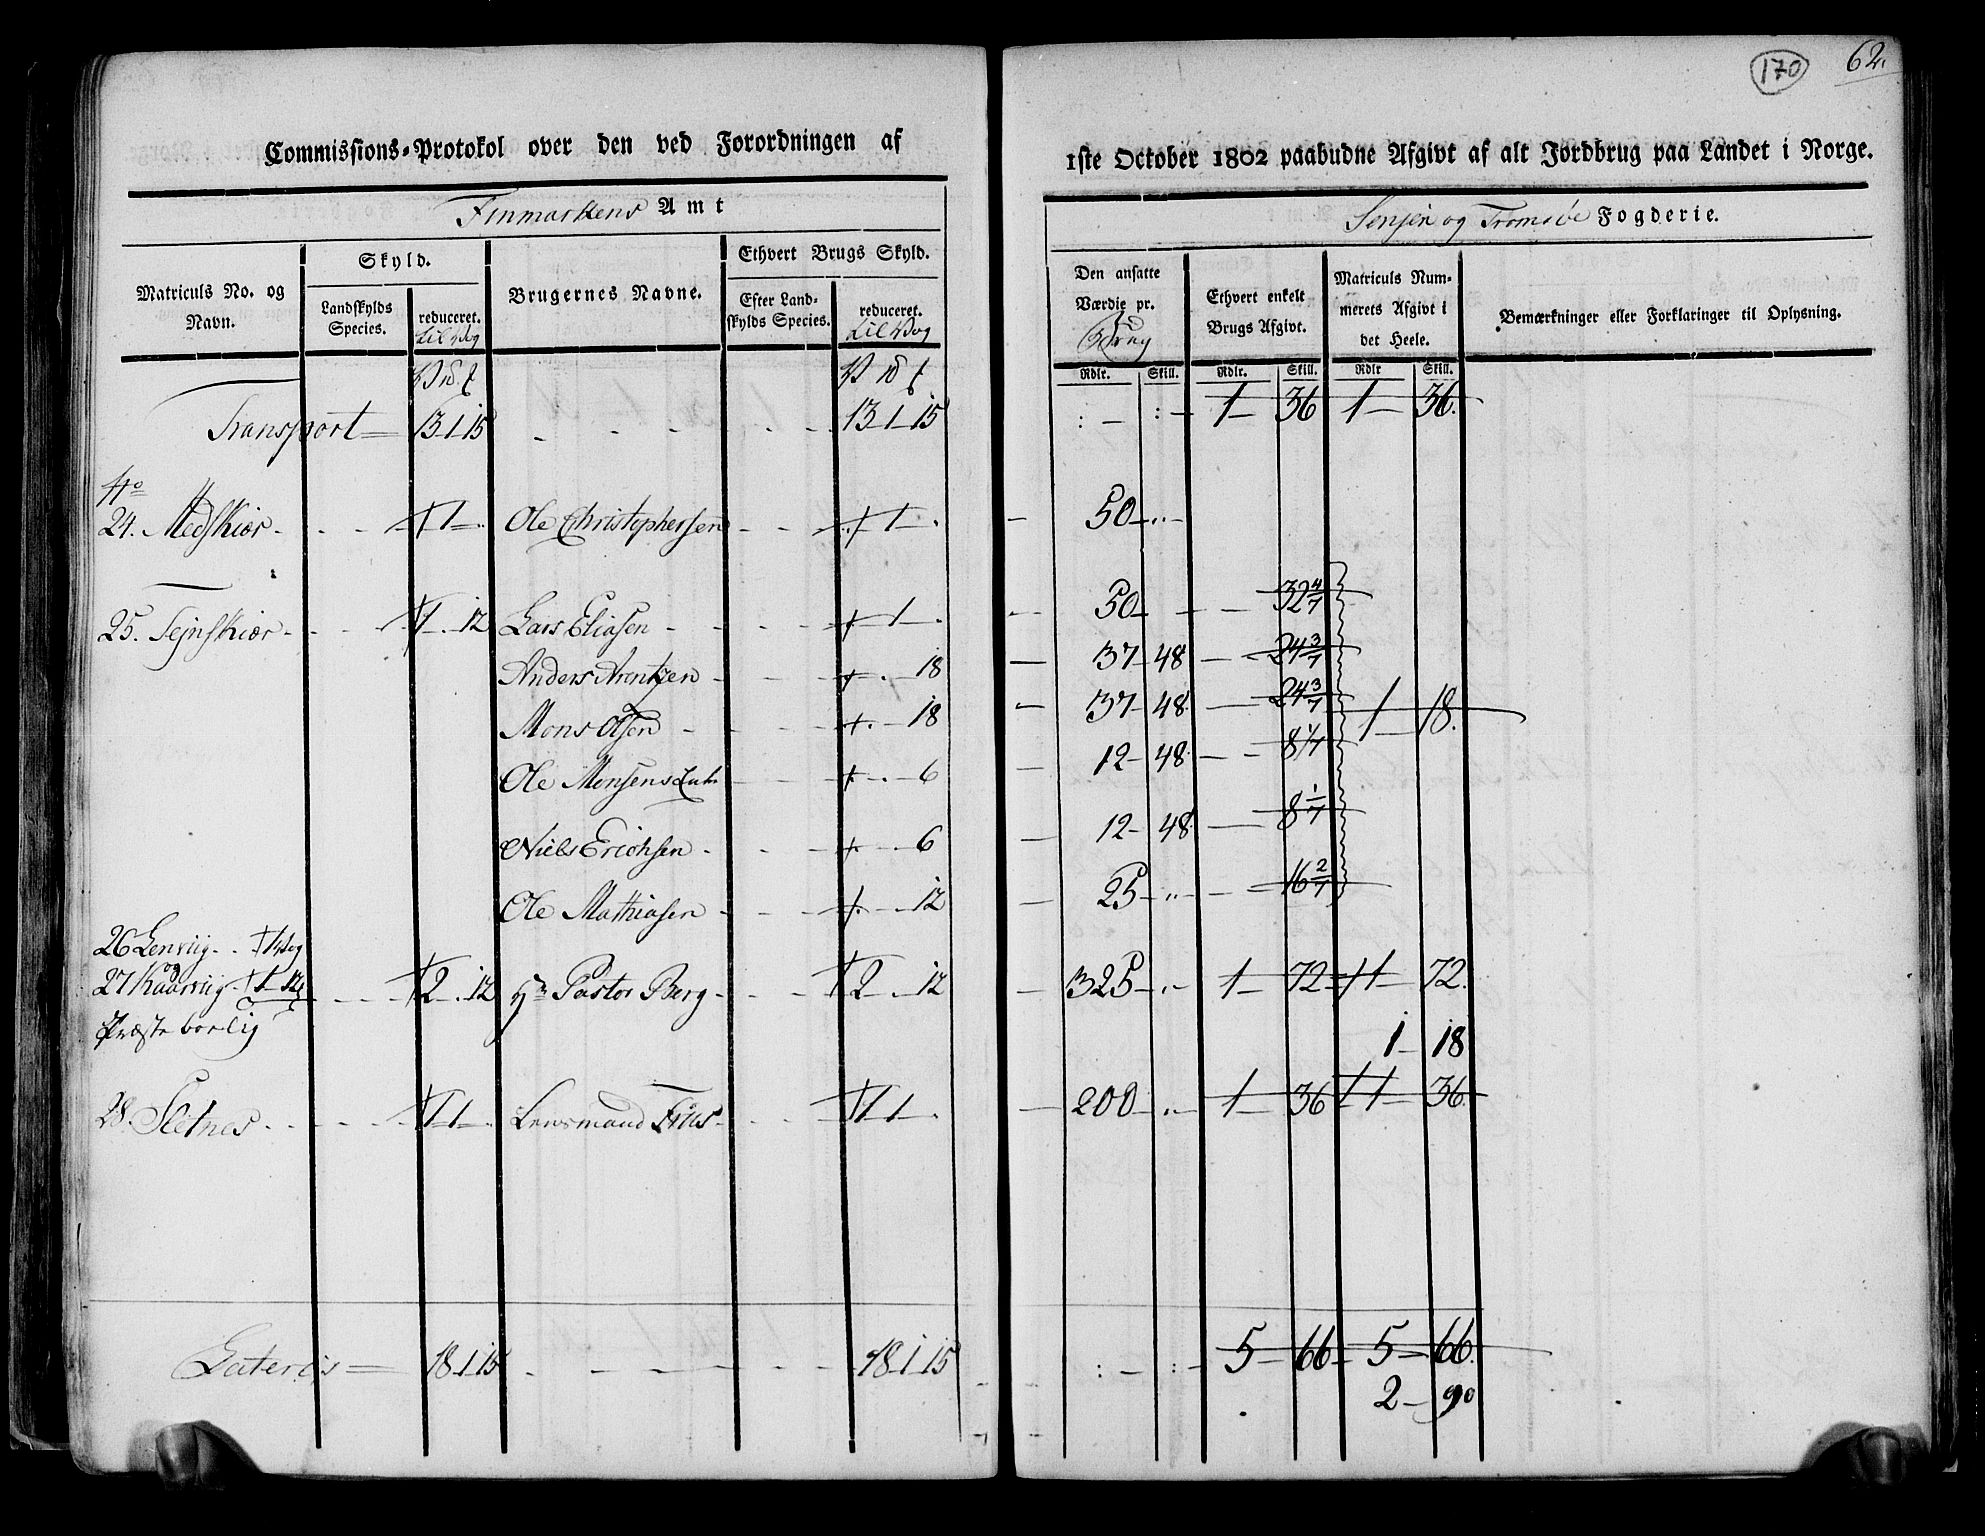 170 62.
Commissions-Protokol over den ved Forordningen af
1ste October 1802 paabudne Afgivt af alt Jordbrug paa Landet i Norge.
Finmarkens Amt
Senjen og Tromsøe Fogderie.
Matriculs No. og Navn.
Skyld.
Landskylds Species.
reduceret. til Vog
Brugernes Navne.
Ethvert Brugs Skyld.
Efter Landskylds Species.
reduceret. til Vog
Den ansatte Værdie pr. Brug
Ethvert enkelt Brugs Afgivt.
Matriculs Nummerets Afgivt i det Heele.
Bemærkninger eller Forklaringer til Oplysning.
Rdlr. Skill. Rdlr. Skill. Rdlr Skill.
Transport 13 1 15 - - - - - 13 1 15 : - : - 1 - 36 1 - 36.
No
24. Medskiær - - - 1 - Ole Christophersen - - 1 - 50 - " -
25. Tejnskiær - - - 1 - 12 Lars Eliasen - - - - 1 - 50 - - - 32 4/7
Anders Arentzen - - - 18 37 - 48 - 24 3/7
Mons Olsen - - - 18 37 - 48 - 24 3/7 1 - 18.
Ole Monsens - - 6 12 - 48 - - 8 1/7
Niels Erichsen - - - 6 12 - 48 - 8 1/7
Ole Mathiasen - - - 12 25 - " - - 16 2/7
26 Lenviig - - 1 Vog
og
27 Kaarviig - 1 - 12
- - - 2 - 12 Hr Pastor Berg - - - 2 - 12 325 - " - 1 - 72 - 1 - 72.
Præsteboelig
1 - 18
28. Sletnes - - - - 1 - Lensmand Friis - - - 1 - 200 - " - 1 - 36 1 - 36.
Lateris 18 1 15 - - - - - 18 1 15 : - : - 5 - 66 - 5 - 66.
2 - 90